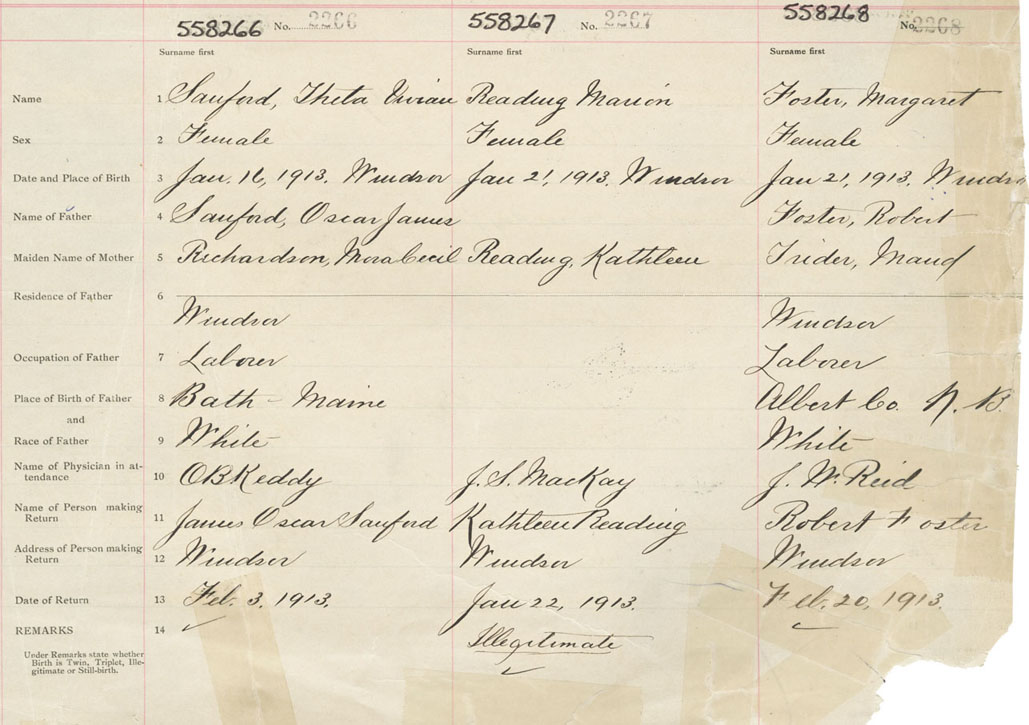 558266 No. 2266 558267 No. 2267 558268 No. 2268
Surname first Surname first Surname first
Name 1 Sanford, Theta Vivian Reading Marion Foster, Margaret
Sex 2 Female Female Female
Date and Place of Birth 3 Jan. 16, 1913. Windsor Jan 21, 1913. Windsor Jan 21, 1913. Windsor
Name of Father 4 Sanford, Oscar James Foster, Robert
Maiden Name of Mother 5 Richardson, Mora Cecil Reading, Kathleen Trider, Maud
Residence of Father 6
Windsor Windsor
Occupation of Father 7 Laborer Laborer
Place of Birth of Father 8 Bath - Maine Albert Co. N. B.
and
Race of Father 9 White White
Name of Physician in at-
tendance 10 O B Keddy J. S. MacKay J. W. Reid
Name of Person making
Return 11 James Oscar Sanford Kathleen Reading Robert Foster
Address of Person making
Return 12 Windsor Windsor Windsor
Date of Return 13 Feb. 3, 1913. Jan 22, 1913. Feb. 20, 1913.
REMARKS 14 Illegitimate
Under Remarks state whether
Birth is Twin, Triplet, Ille-
gitimate or Still-birth.